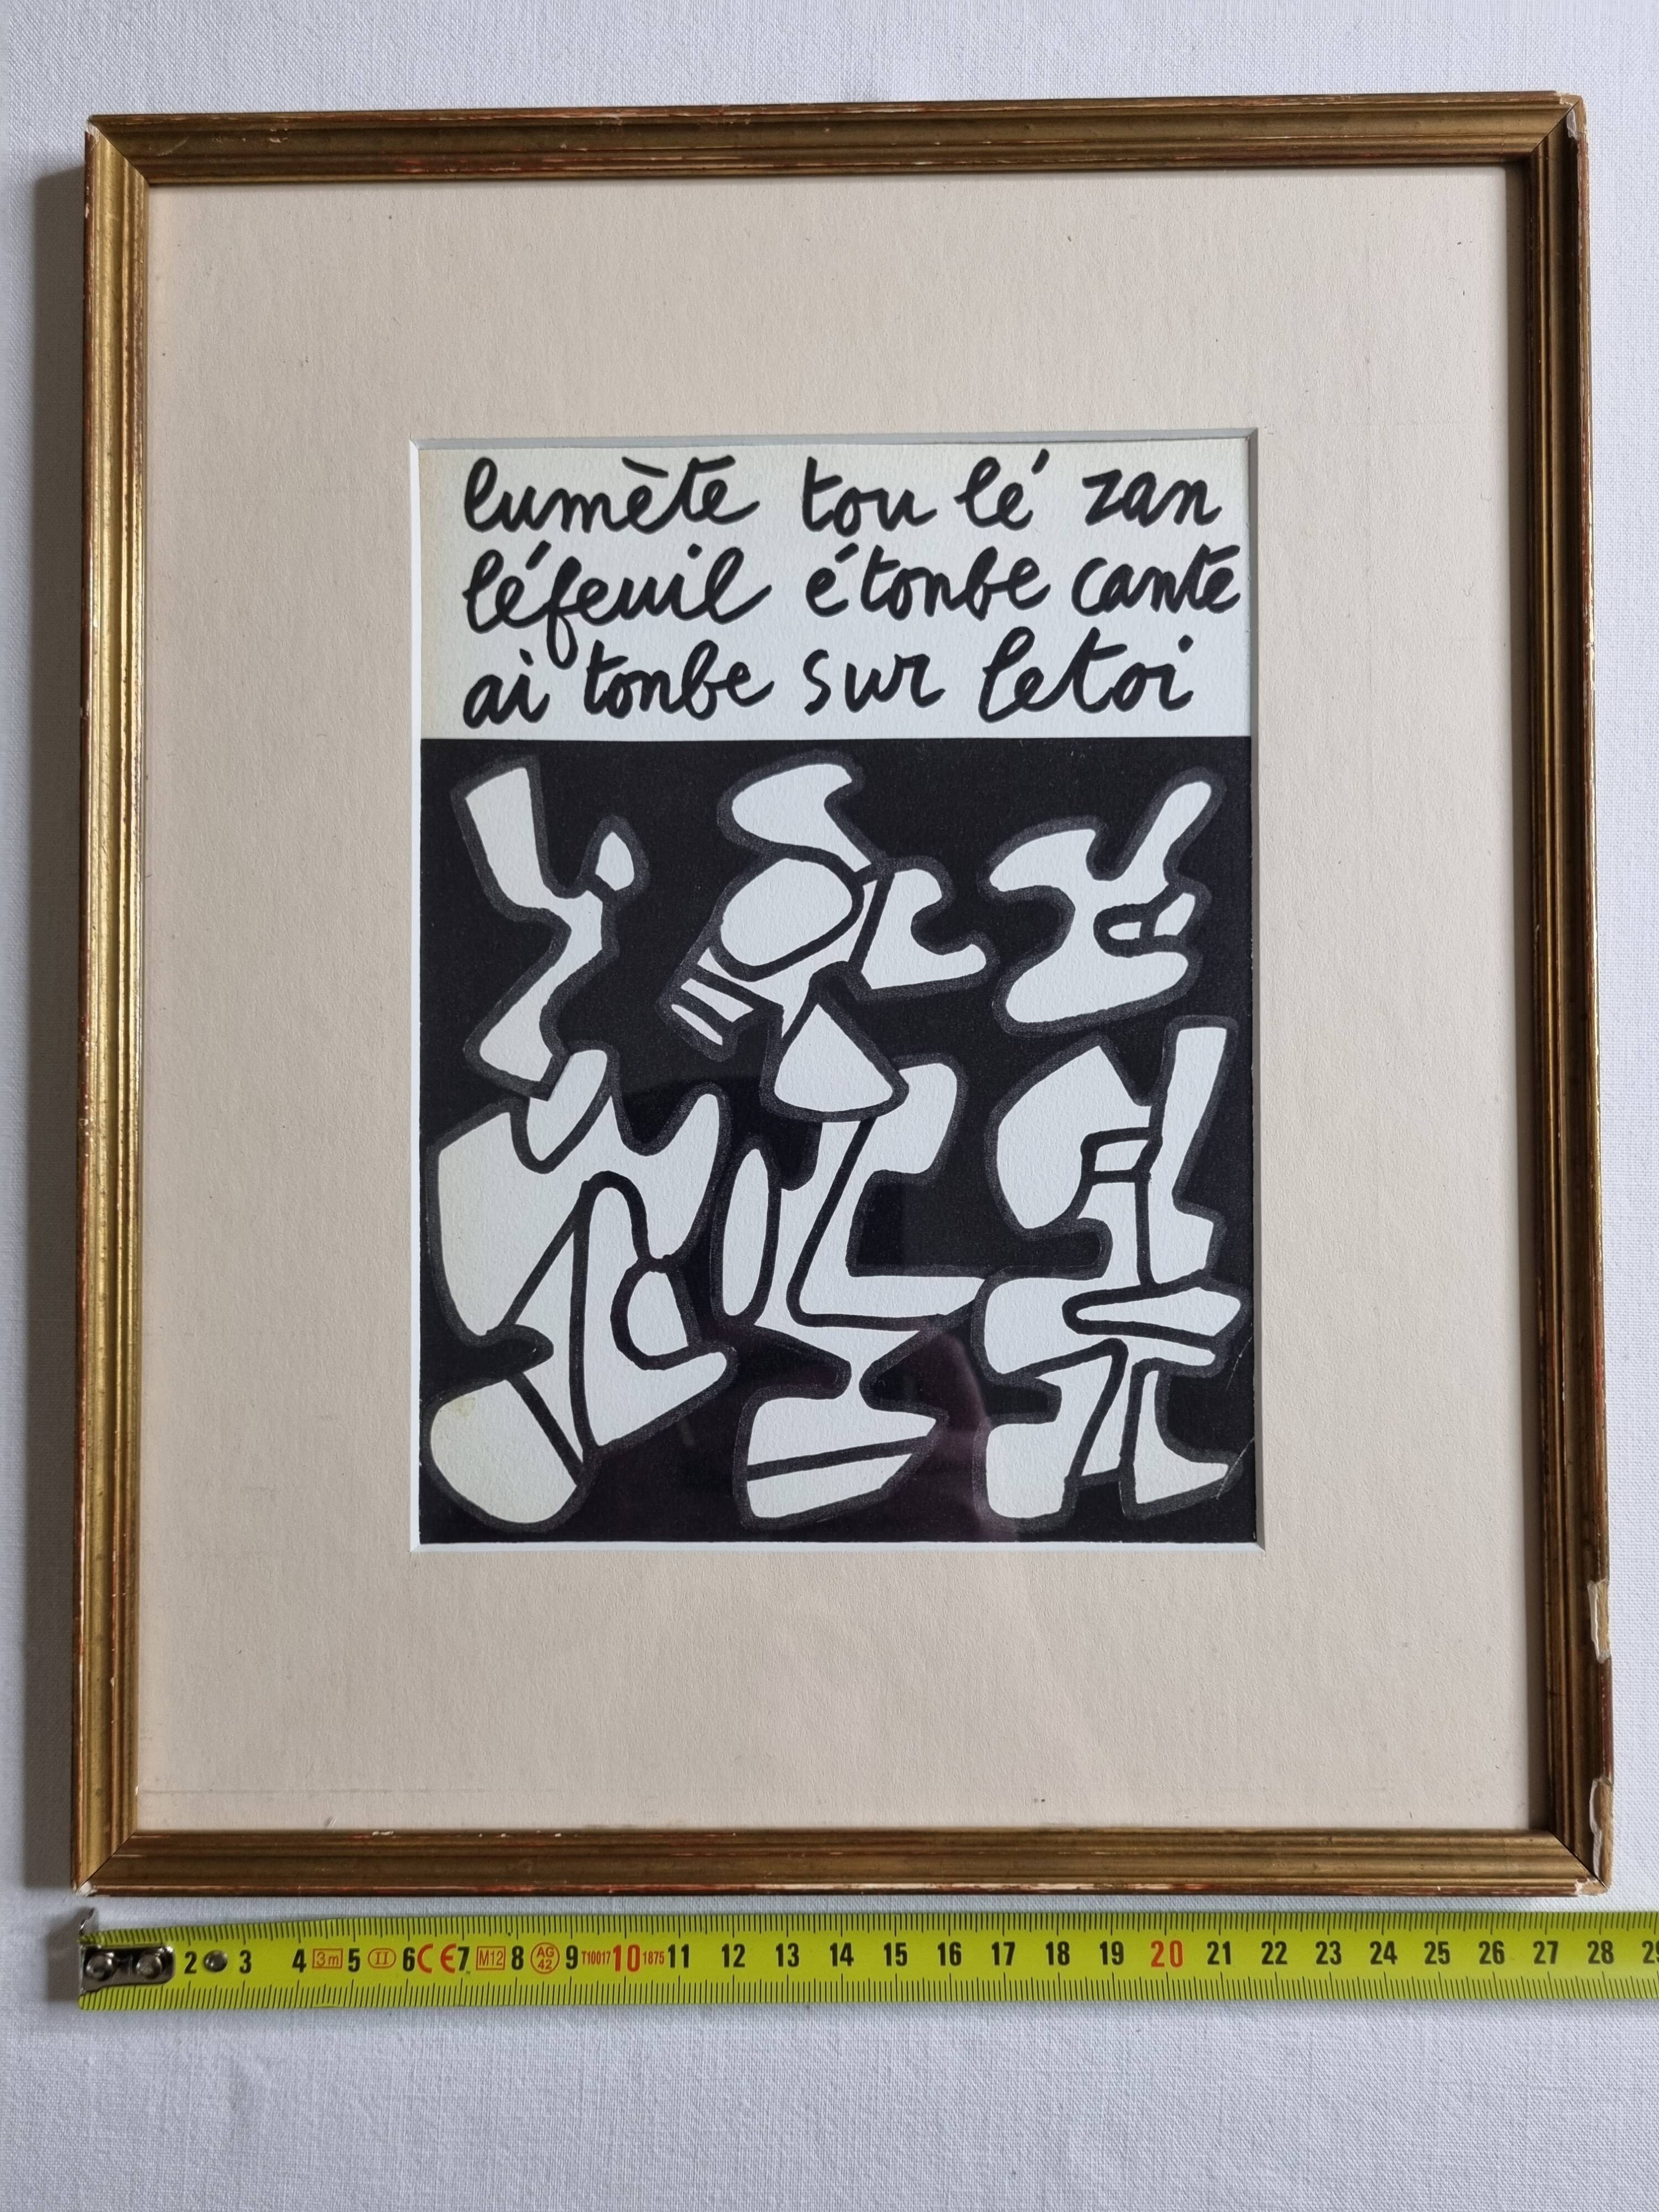 lumète tou lé zan
léfeuil étonbe cante
ai tonbe sur letoi
2 3 4 3m 5 II 6 CE 7 M12 8 AG 42 9 T10017 10 1875 11 12 13 14 15 16 17 18 19 20 21 22 23 24 25 26 27 28 29